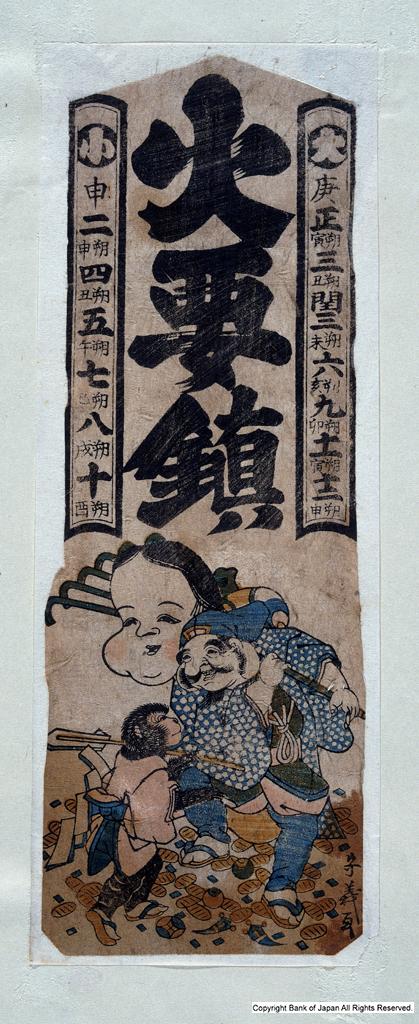 火要鎮
大
庚
正寅朔
三丑朔
閏三未朔
六亥朔
九卯朔
十一寅朔
十二申朔
小
申
二申朔
四丑朔
五午朔
七巳朔
八戌朔
十酉朔
Copyright Bank of Japan All Rights Reserved.